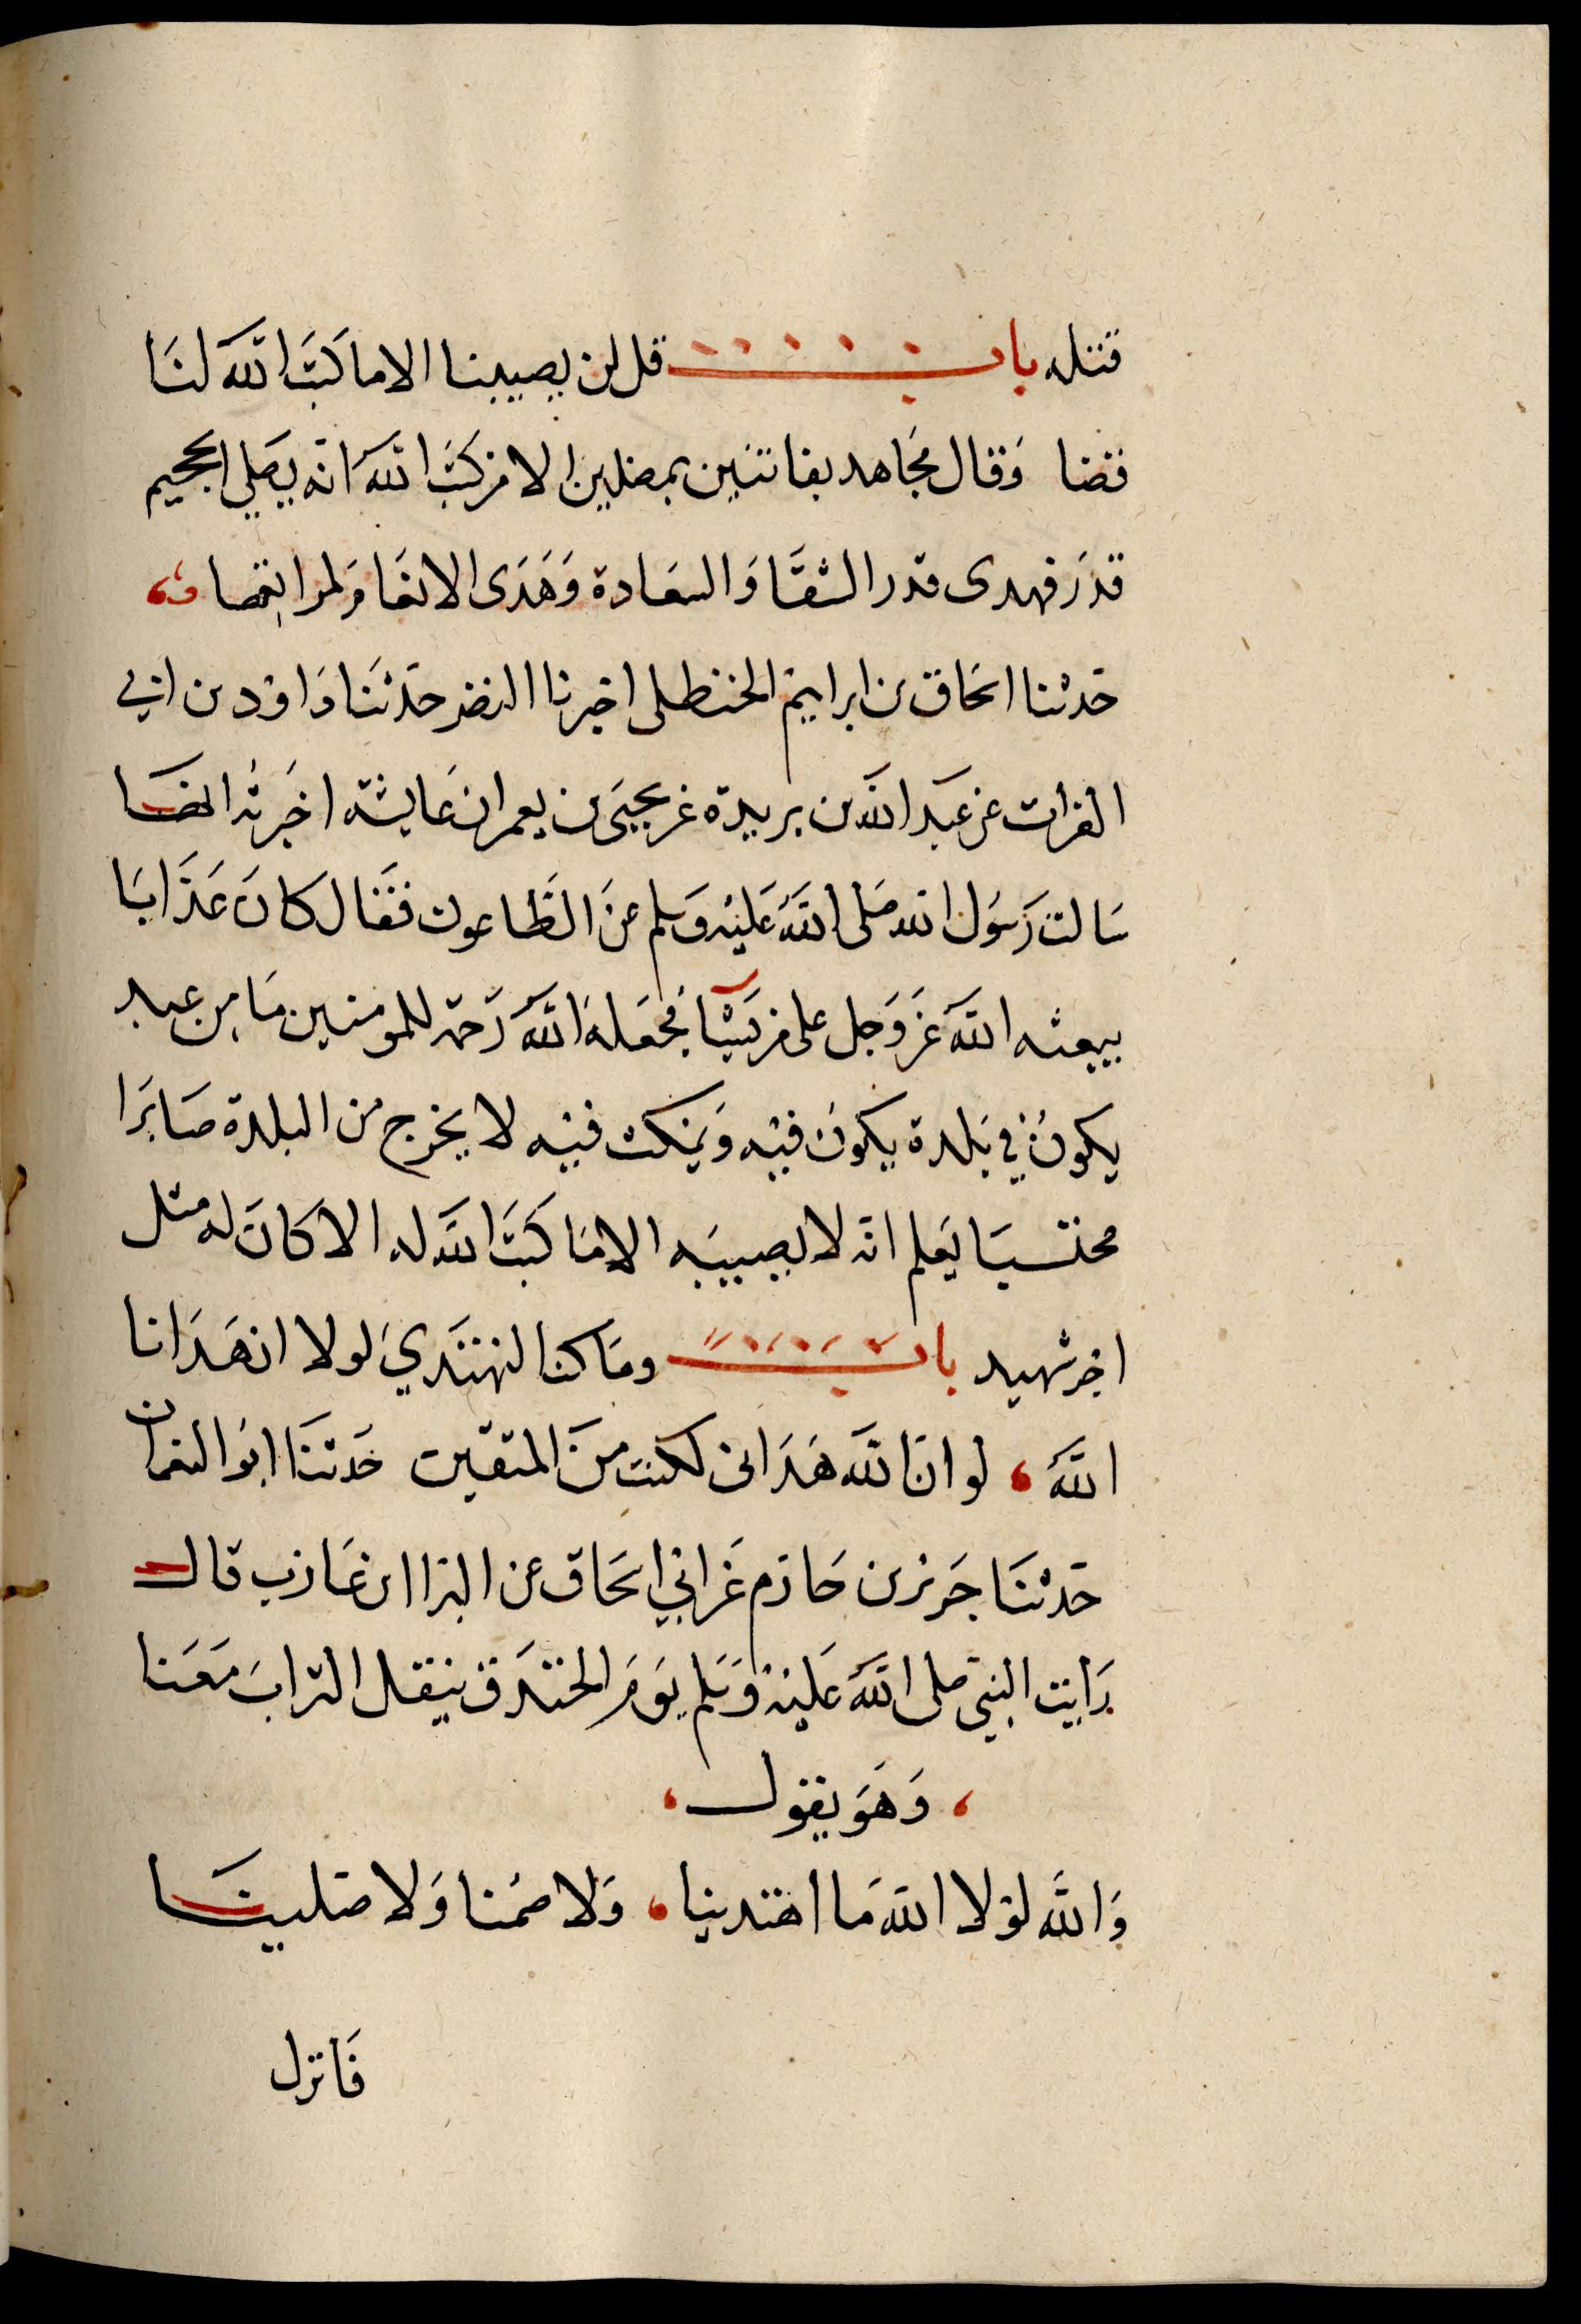 قتله باب قل لن يصيبنا الا ما كتب الله لنا
قضا وقال مجاهد بفاتنين بمضلين الا من كتب الله انه يصلي الجحيم
قدر فهدى قدر الشقا والسعادة وهدى الانعام لمراتعها
حدثنا اسحاق بن ابراهيم الحنظلى اخبرنا النضر حدثنا داود بن ابي
الفرات عن عبد الله بن بريدة عن يحيى بن يعمر ان عايشة اخبرته انها
سالت رسول الله صلى الله عليه وسلم عن الطاعون فقال كان عذابا
يبعثه الله عز وجل على من يشا فجعله الله رحمة للمومنين ما من عبد
يكون في بلدة يكون فيه ويمكث فيه لا يخرج من البلدة صابرا
محتسبا يعلم انه لا يصيبه الا ما كتب الله له الا كان له مثل
اجر شهيد باب وما كنا لنهتدي لولا ان هدانا
الله، لو ان الله هدانى لكنت من المتقين حدثنا ابو النعمان
حدثنا جرير بن حازم عن ابي اسحاق عن البرا ابن عازب قال
رايت النبي صلى الله عليه وسلم يوم الخندق ينقل التراب معنا
، وهو يقول ،
والله لولا الله ما اهتدينا، ولا صمنا ولا صلينا
فانزل